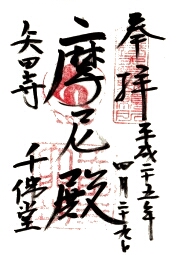 奉拝
平成二十五年
四月二十九日
摩尼殿
矢田寺
千佛堂